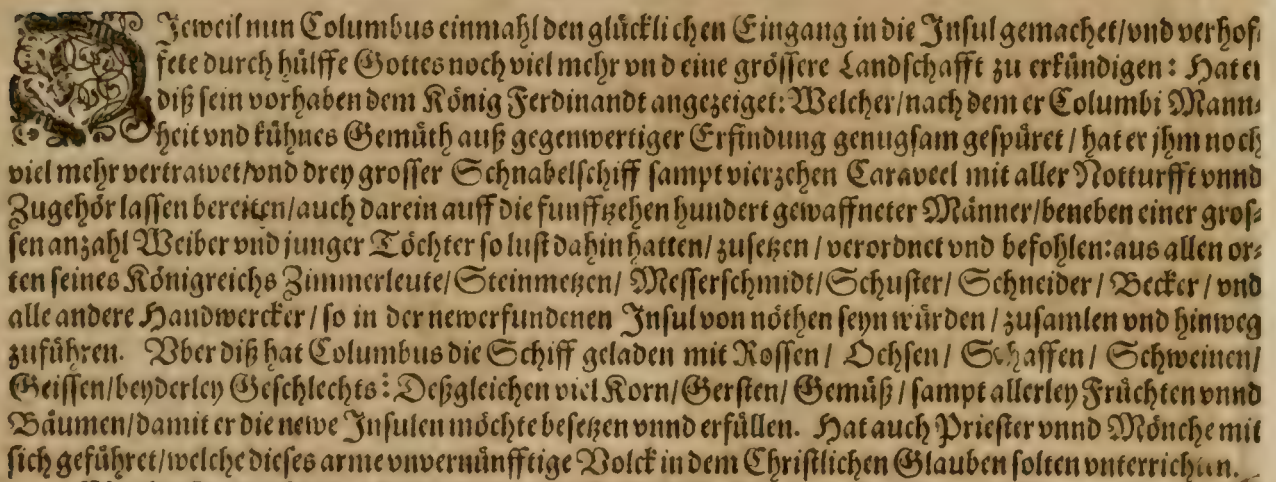 DIeweil nun Columbus einmahl den glücklichen Eingang in die Insul gemachet/vnd verhof-
fete durch hülffe Gottes noch viel mehr vnd eine grössere Landschafft zu erkündigen: Hat er
diß sein vorhaben dem König Ferdinandt angezeiget: Welcher/nach dem er Columbi Mann-
heit vnd kühnes Gemüth auß gegenwertiger Erfindung genugsam gespüret / hat er jhm noch
viel mehr vertrawet/vnd drey grosser Schnabelschiff sampt vierzehen Caraveel mit aller Notturfft vnnd
Zugehör lassen bereiten/auch darein auff die funffzehen hundert gewaffneter Männer/beneben einer gros-
sen anzahl Weiber vnd junger Töchter so lust dahin hatten/ zusetzen / verordnet vnd befohlen: aus allen or-
ten seines Königreichs Zimmerleute/Steinmetzen/ Messerschmidt/Schuster/ Schneider/ Becker/ vnd
alle andere Handwercker / so in der newerfundenen Insul von nöthen seyn würden / zusamlen vnd hinweg
zuführen. Vber diß hat Columbus die Schiff geladen mit Rossen/ Ochsen/ Schaffen/ Schweinen/
Geissen/beyderley Geschlechts: Deßgleichen viel Korn/Gersten/ Gemüß / sampt allerley Früchten vnnd
Bäumen/damit er die newe Insulen möchte besetzen vnnd erfüllen. Hat auch Priester vnnd Mönche mit
sich geführet/welche dieses arme vnvernünfftige Volck in dem Christlichen Glauben solten vnterrichten.